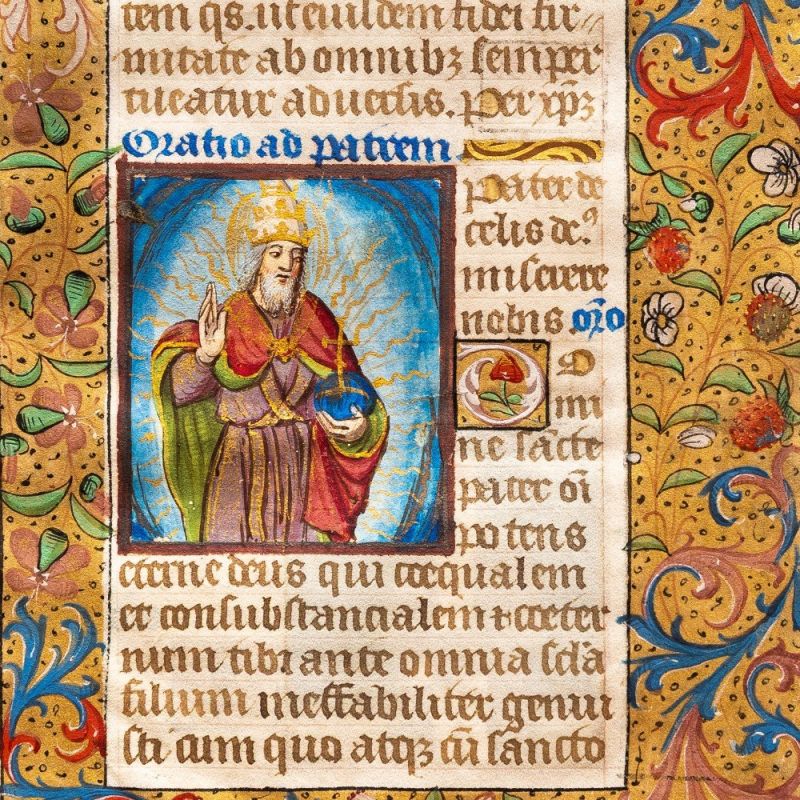 tem q̄s. ut eiusdem fidei fir
mitate ab omnibꝫ semper
tueatur aduersis. Per xp̄ꝫ
Oratio ad patrem
Pater de
celis deꝰ
miserere
nobis or̄o
Do
mi
ne sc̄te
pater oī
potens
eterne deus qui coequalem
et consubstancialem ⁊ coeter
num tibi ante omnia sc̄la
filium ineffabiliter genui
sti cum quo atqꝫ cū sancto